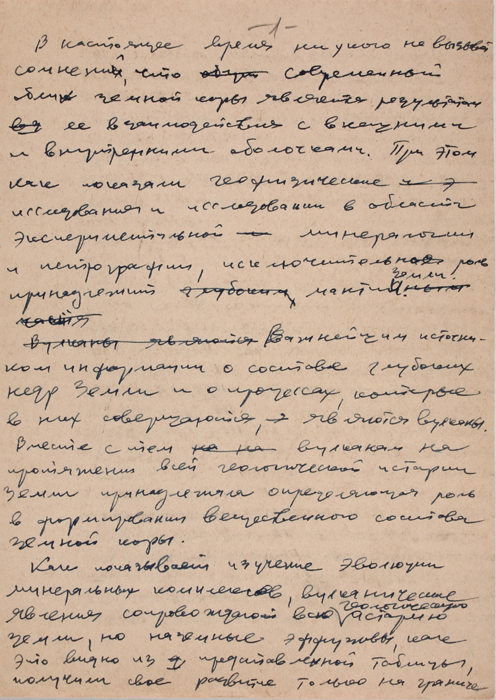 -1-
В настоящее время ни у кого не вызывает
сомнений, что современный
облик земной коры является результатом
ее взаимодействия с внешними
и внутренними оболочками. При этом
как показали геофизические
исследования и исследования в области
экспериментальной минералогии
и петрографии, исключительная роль
принадлежит глубоким мантии Земли.
Вулканы являются Важнейшим источни-
ком информации о составе глубоких
недр Земли и о процессах, которые
в них совершаются, являются вулканы.
Вместе с тем вулканам на
протяжении всей геологической истории
Земли принадлежала определяющая роль
в формировании вещественного состава
земной коры.
Как показывает изучение эволюции
минеральных комплексов, вулканические
явления сопровождают всю геологическую историю
Земли, но наземные эффузивы как
это видно из представленной таблицы,
получили свое развитие только на границе